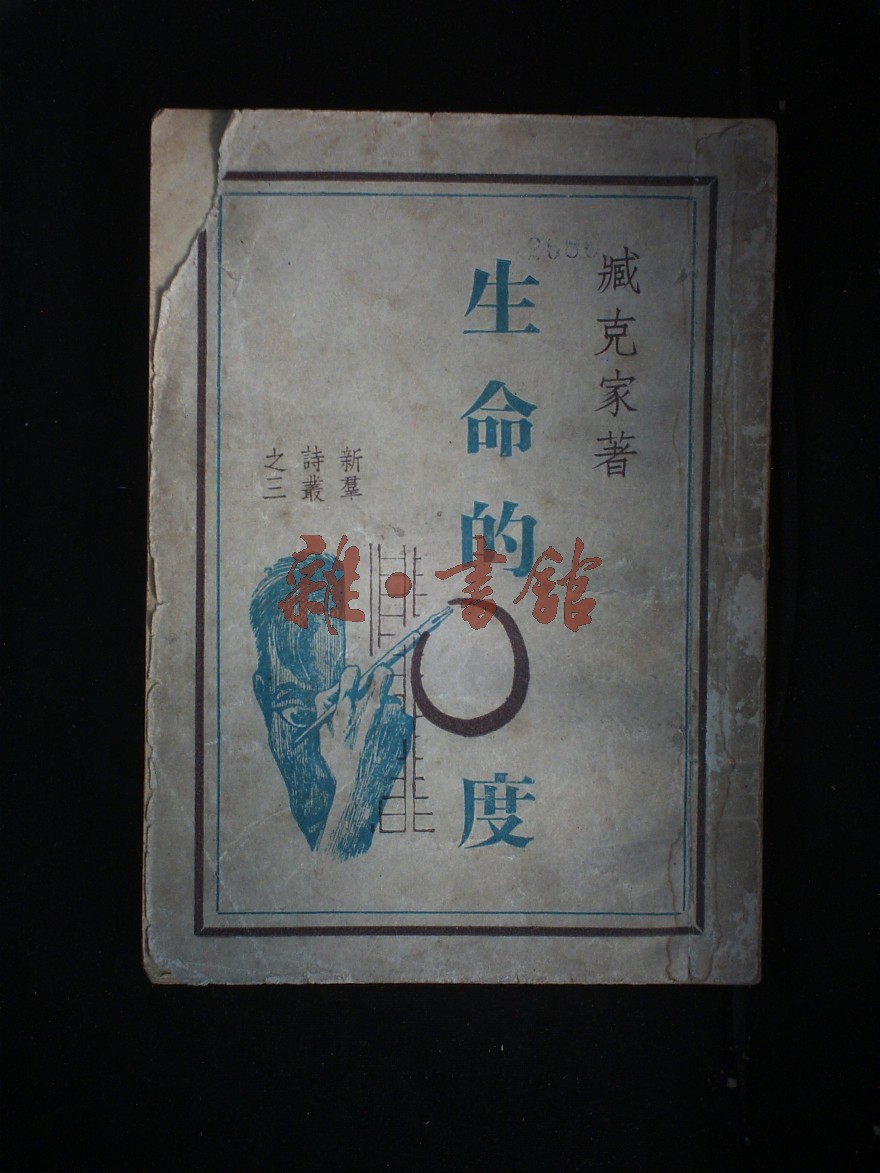 臧克家著
生命的○度
新羣
詩叢
之三
雜·書舘